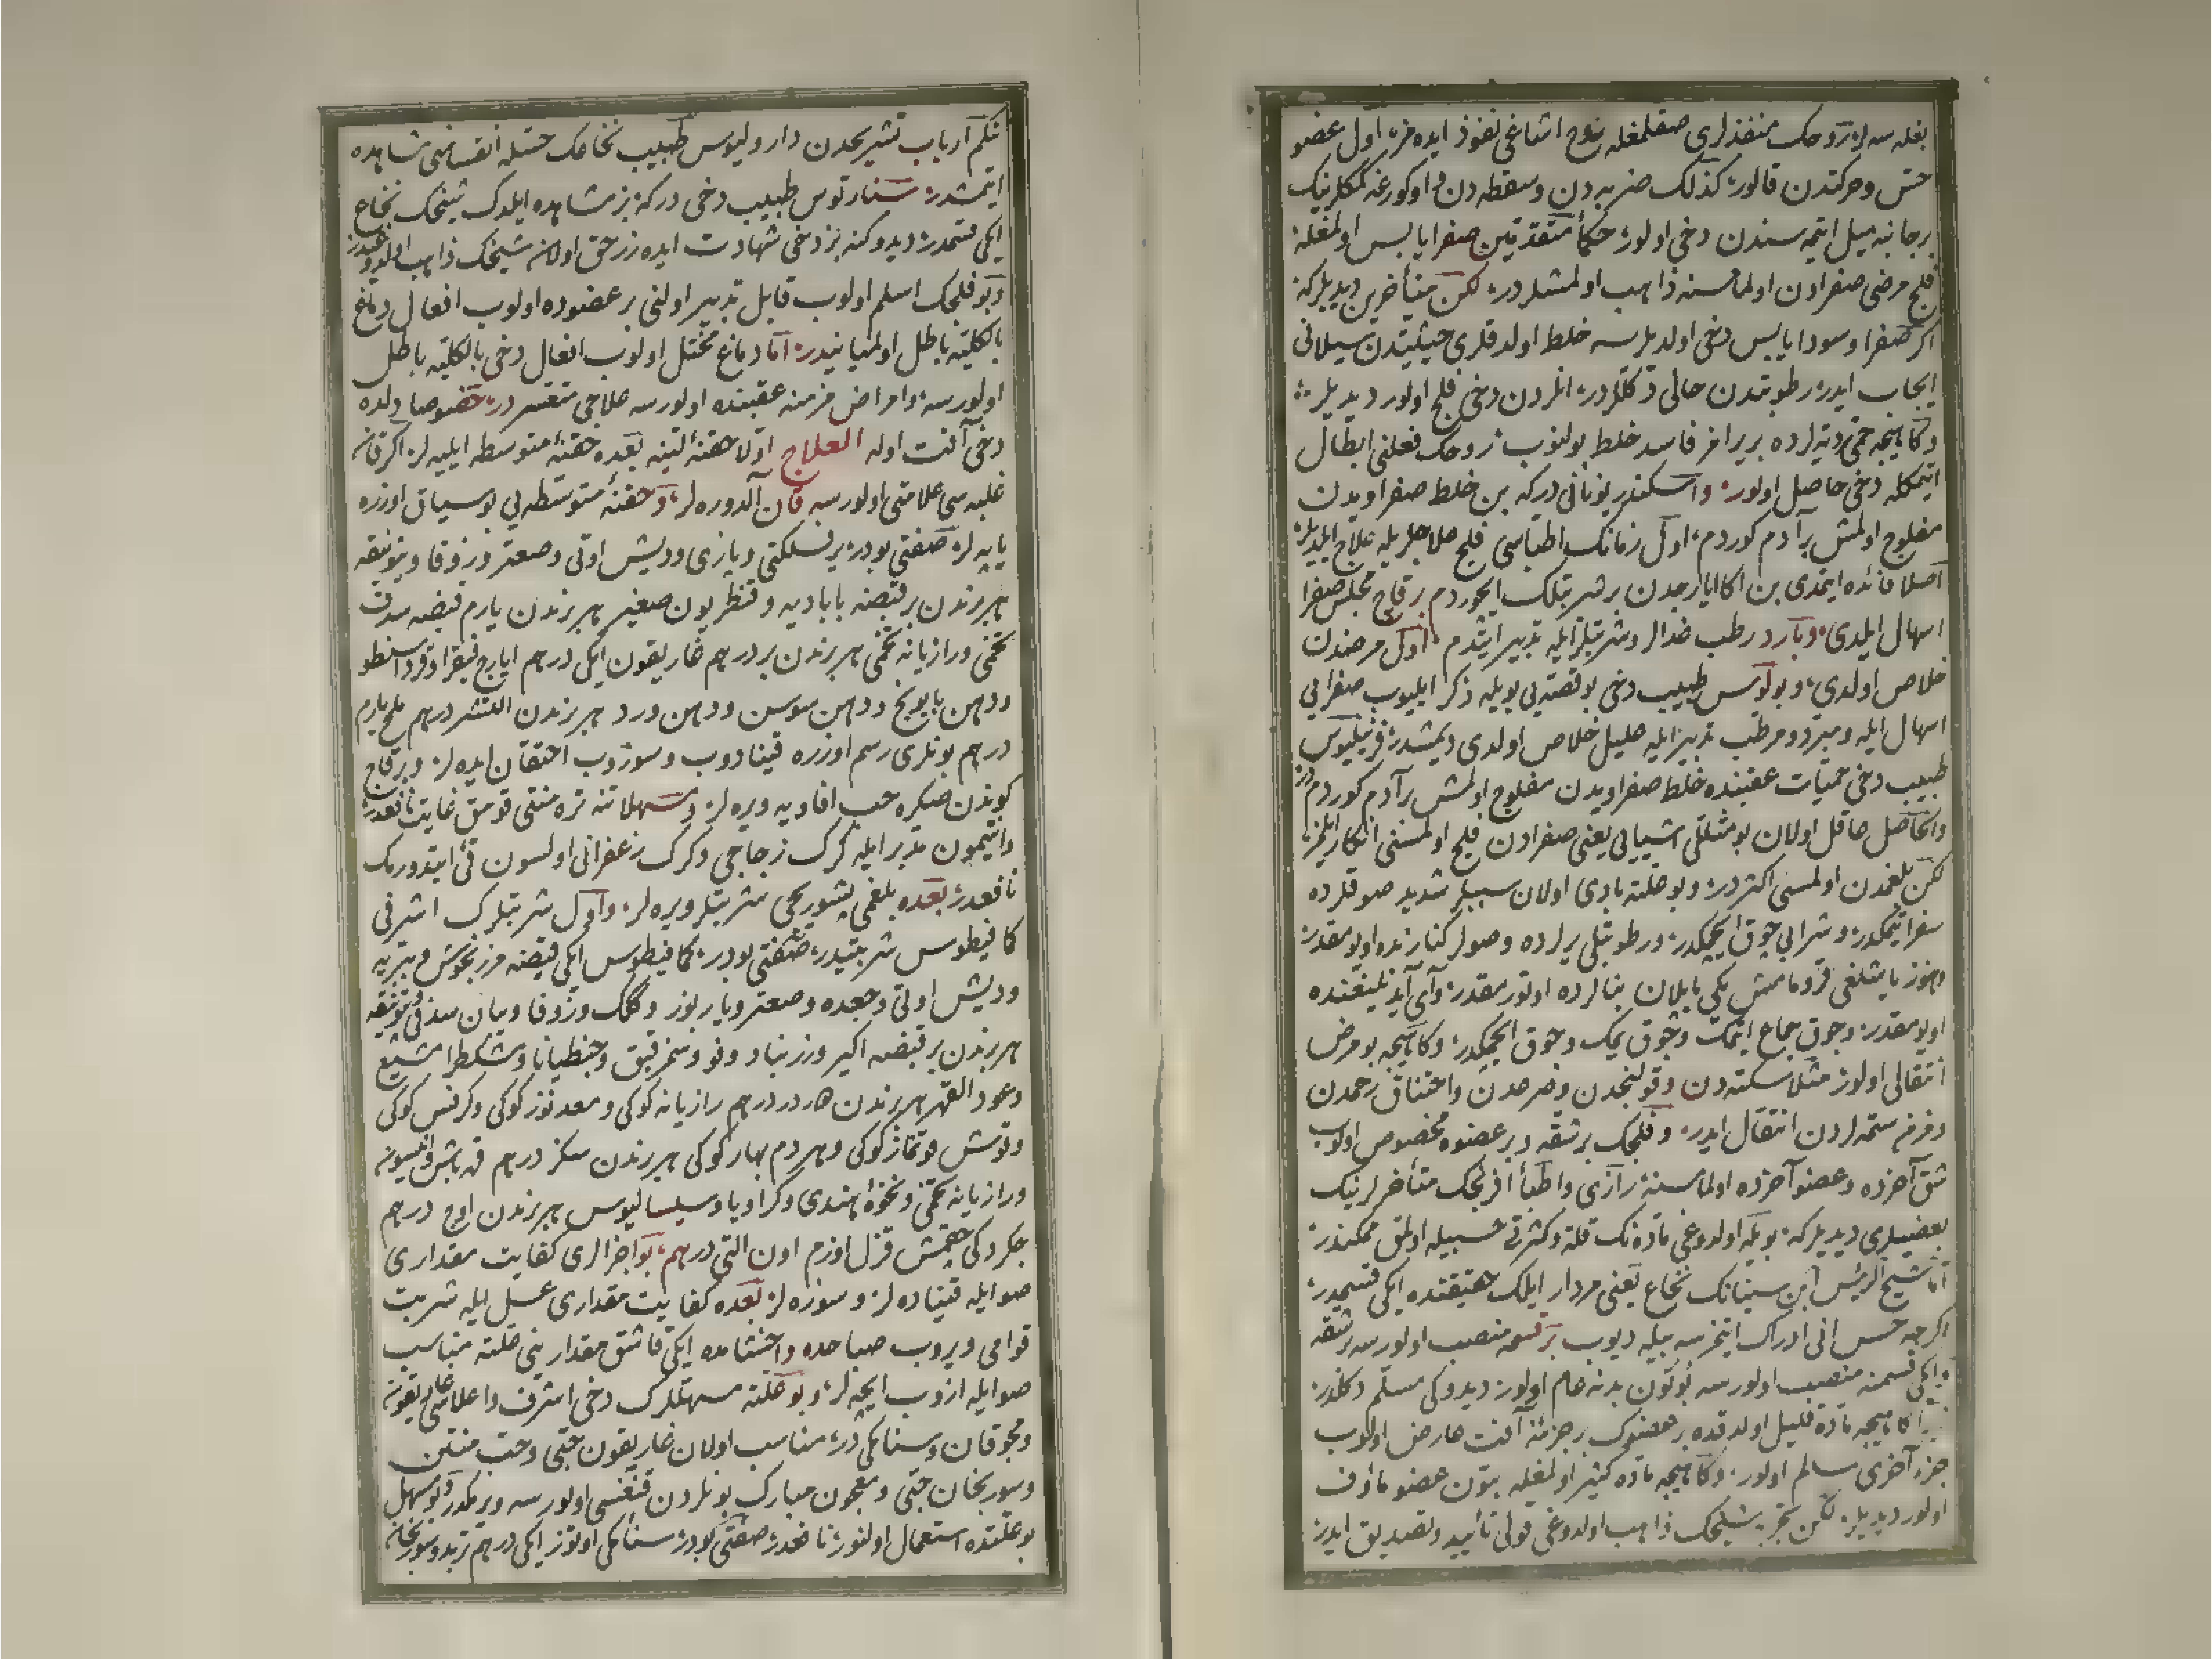 بغله سه لر روحك منفذلرى صقلمغله روح اشاغى نفوذ ايده مز، اول عضو
حس وحركتدن قالور، كذلك ضربه دن وسقطه دن واوكورغه كمكلرينك
برجانبه ميل ايتمه سندن دخى اولور، حكمأ متقدمين صفرا يابس اولمغله
فلج مرضى صفرادن اولماسنه ذاهب اولمشلردر، لكن متأخرين ديديلركه
اكر صفرا وسودا يابس دخى اولديلرسه خلط اولدقلرى حيثيتدن سيلانى
ايجاب ايدر، رطوبتدن خالى دكللردر، انلردن دخى فلج اولور ديديلر
وكاهيجه حمى رديه لرده بريرامز فاسد خلط بولنوب روحك فعلنى ابطال
ايتمكله دخى حاصل اولور، واسكندر يونانى دركه بن خلط صفراويدن
مفلوج اولمش بر آدم كوردم، اول زمانك اطباسى فلج علاجلريله علاج ايلديلر
اصلا فائده ايتمدى بن اكا ايارجدن بر شربتلك ايچوردم برقاچ مجلس صفرا
اسهال ايلدى، وبارد رطب غدالر وشربتلر ايله تدبير ايتدم اول مرضدن
خلاص اولدى، وبولوس طبيب دخى بو قصه يى بويله ذكر ايليوب صفرايى
اسهال ايله ومبرد ومرطب تدبير ايله عليل خلاص اولدى ديمشدر،
طبيب دخى حميات عقبنده خلط صفراويدن مفلوج اولمش بر آدم كوردم در
والحاصل عاقل اولان بو مثللى اشيايى يعنى صفرادن فلج اولمسنى انكار ايلمز،
لكن بلغمدن اولمسى اكثردر، وبو علته بادى اولان سببلر شديد صوقلرده
سفر ايتمكدر، وشرابى چوق ايچمكدر، ورطوبتلى يرلرده وصولر كنارنده اويومقدر،
وهنوز ياشلغى قرومامش يكى ياپلان بنالرده اوتورمقدر، وآى آيدنلغنده
اويومقدر، وچوق جماع ايتمك وچوق يمك وچوق ايچمكدر، وكاهيجه بو مرض
انتقالى اولور مثلا سكته دن وقولنجدن وصرعدن واختناق رحمدن
ومزمن ستمه لردن انتقال ايدر، وفلجك بر شقه وبر عضوه مخصوص اولوب
شق آخرده وعضو آخرده اولماسنه رازى واطبأ افرنجك متأخرلرينك
بعضيلرى ديديلركه بويله اولدوغى ماده نك قلة وكثرتى حسبيله اولمق ممكندر،
اما شيخ الرئيس ابن سينانك نخاع يعنى مردار ايلك حقيقتده ايكى قسمدر،
اكرچه حس انى ادراك ايتمزسه بيله ديوب بر قسمه منصب اولورسه بر شقه
وايكى قسمنه منصب اولورسه بوتون بدنه عام اولور ديدوكى مسلم دكلدر،
كاهيجه ماده قليل اولدقده بر عضوك بر جزئنه آفت عارض اولوب
جزء آخرى سالم اولور، وكاهيجه ماده كثير اولمغله بتون عضو مأوف
اولور ديديلر، لكن تجربه شيخك ذاهب اولدوغى قولى تأييد وتصديق ايدر،
نتكم ارباب تشريحدن داروليوس طبيب نخاعك حسله انقسامنى مشاهده
ايتمشدر، سنارتوس طبيب دخى دركه بز مشاهده ايلدك شيخك نخاع
ايكى قسمدر ديدوكنه بز دخى شهادت ايده رز حق اولان شيخك ذاهب اولدوغيدر،
وبو فلجك اسلم اولوب قابل تدبير اولنى بر عضوده اولوب افعال دماغ
بالكليه باطل اولميانيدر، اما دماغ مختل اولوب افعال دخى بالكليه باطل
اولورسه، وامراض مزمنه عقبنده اولورسه علاجى متعسردر، خصوصا دلده
دخى آفت اوله العلاج اولا حقنهٔ لينه بعده حقنهٔ متوسطه ايليه لر، اكر قان
غلبه سى علامتى اولورسه قان آلدوره لر، وحقنهٔ متوسطه يى بو سياق اوزره
ياپه لر، صفتى بودر، برنسلكتى ويازى وديش اوتى وصعتر وزوفا وبتونيقه
هر برندن بر قبضه باباديه وقنطريون صغير هر برندن يارم قبضه سدف
تخمى ورازيانه تخمى هر برندن بر درهم غاريقون ايكى درهم ايارج فيقرا
ودهن بابونج ودهن سوسن ودهن ورد هر برندن التمشر درهم ملح يارم
درهم بونلرى رسم اوزره قينادوب وسوزوب احتقان ايده لر، وبرقاچ
كوندن صكره حب افاويه ويره لر، ومسهلاتنه تره منتى قومق غايت نافعدر،
وانتيمون تدبر ايله كرك زجاجى وكرك زعفرانى اولسون قى ايتدورمك
نافعدر، بعده بلغمى پشوريجى شربتلر ويره لر، واول شربتلرك اشرفى
كافيطوس شربتيدر، صفتى بودر، كمافيطوس ايكى قبضه مرزنجوش وبتريه
وديش اوتى وجعده وصعتر وياربوز وكلك وزوفا وبيان وبتونيقه
هر برندن بر قبضه اكير وزرنباد وفو وسخرقيق وجنطيانا ومشكطرا مشيع
وعود القهر هر برندن دردر درهم رازيانه كوكى ومعدنوز كوكى وكرفس كوكى
وقوش قونماز كوكى وهر دم بهار كوكى هر برندن سكز درهم وانيسون
ورازيانه تخمى ونخوهٔ هندى وكراويا وسيساليوس هر برندن اوچ درهم
چكردكى چقمش قزل اوزم اون التى درهم، بو اجزالرى كفايت مقدارى
صوايله قيناده لر وسوزه لر، بعده كفايت مقدارى عسل ايله شربت
قوامى ويروب صباحده واخشامده ايكى قاشق مقدارينى علته مناسب
صوايله ازوب ايچه لر، وبو علته مسهللرك دخى اشرف واعلاسى غاريقون
ومجوقان وسنامكى در، مناسب اولان غاريقون حبى وحب منتن
وسورنجان حبى ومعجون مبارك بونلردن قنغسى اولورسه ويرمكدر، وبو مسهل
بو علتده استعمال اولنور، نافعدر، صفتى بودر، سنامكى اوتوز ايكى درهم تربد وسورنجان